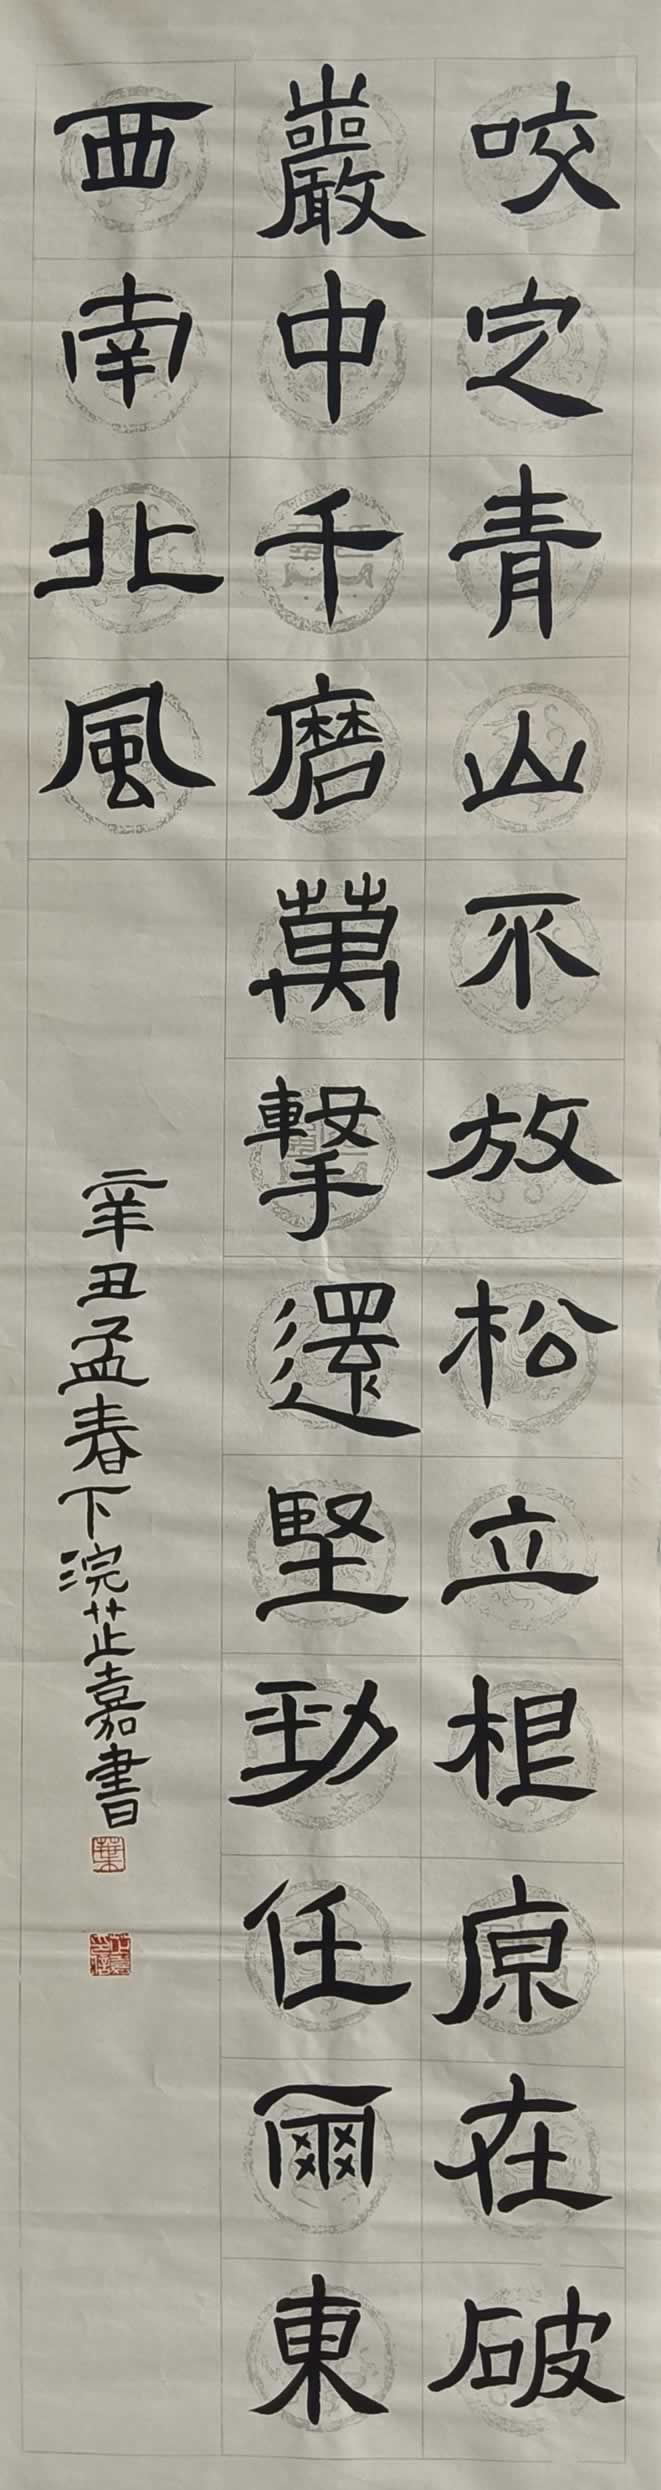 咬定青山不放松立根原在破
巖中千磨萬擊還堅勁任爾東
西南北風
辛丑孟春下浣芷嘉書
葉